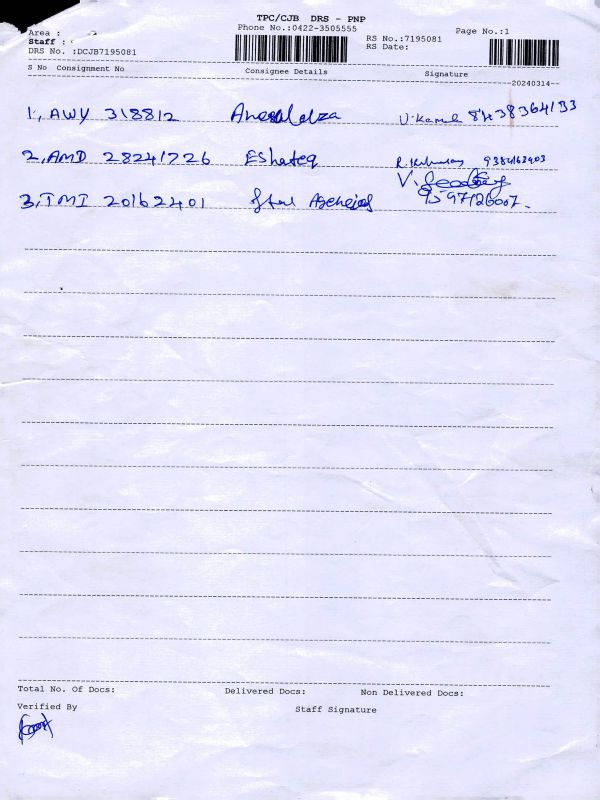 TPC/CJB DRS - PNP
Phone No.:0422-3505555
Page No.:1
Area :
Staff :
DRS No. :DCJB7195081
RS No.:7195081
RS Date:
S No Consignment No Consignee Details Signature
--20240314--
1, AWY 318812
2, AMD 28241726 Eshateq
3, IMI 20162401 Agencies
Total No. Of Docs: Delivered Docs: Non Delivered Docs:
Verified By
Staff Signature